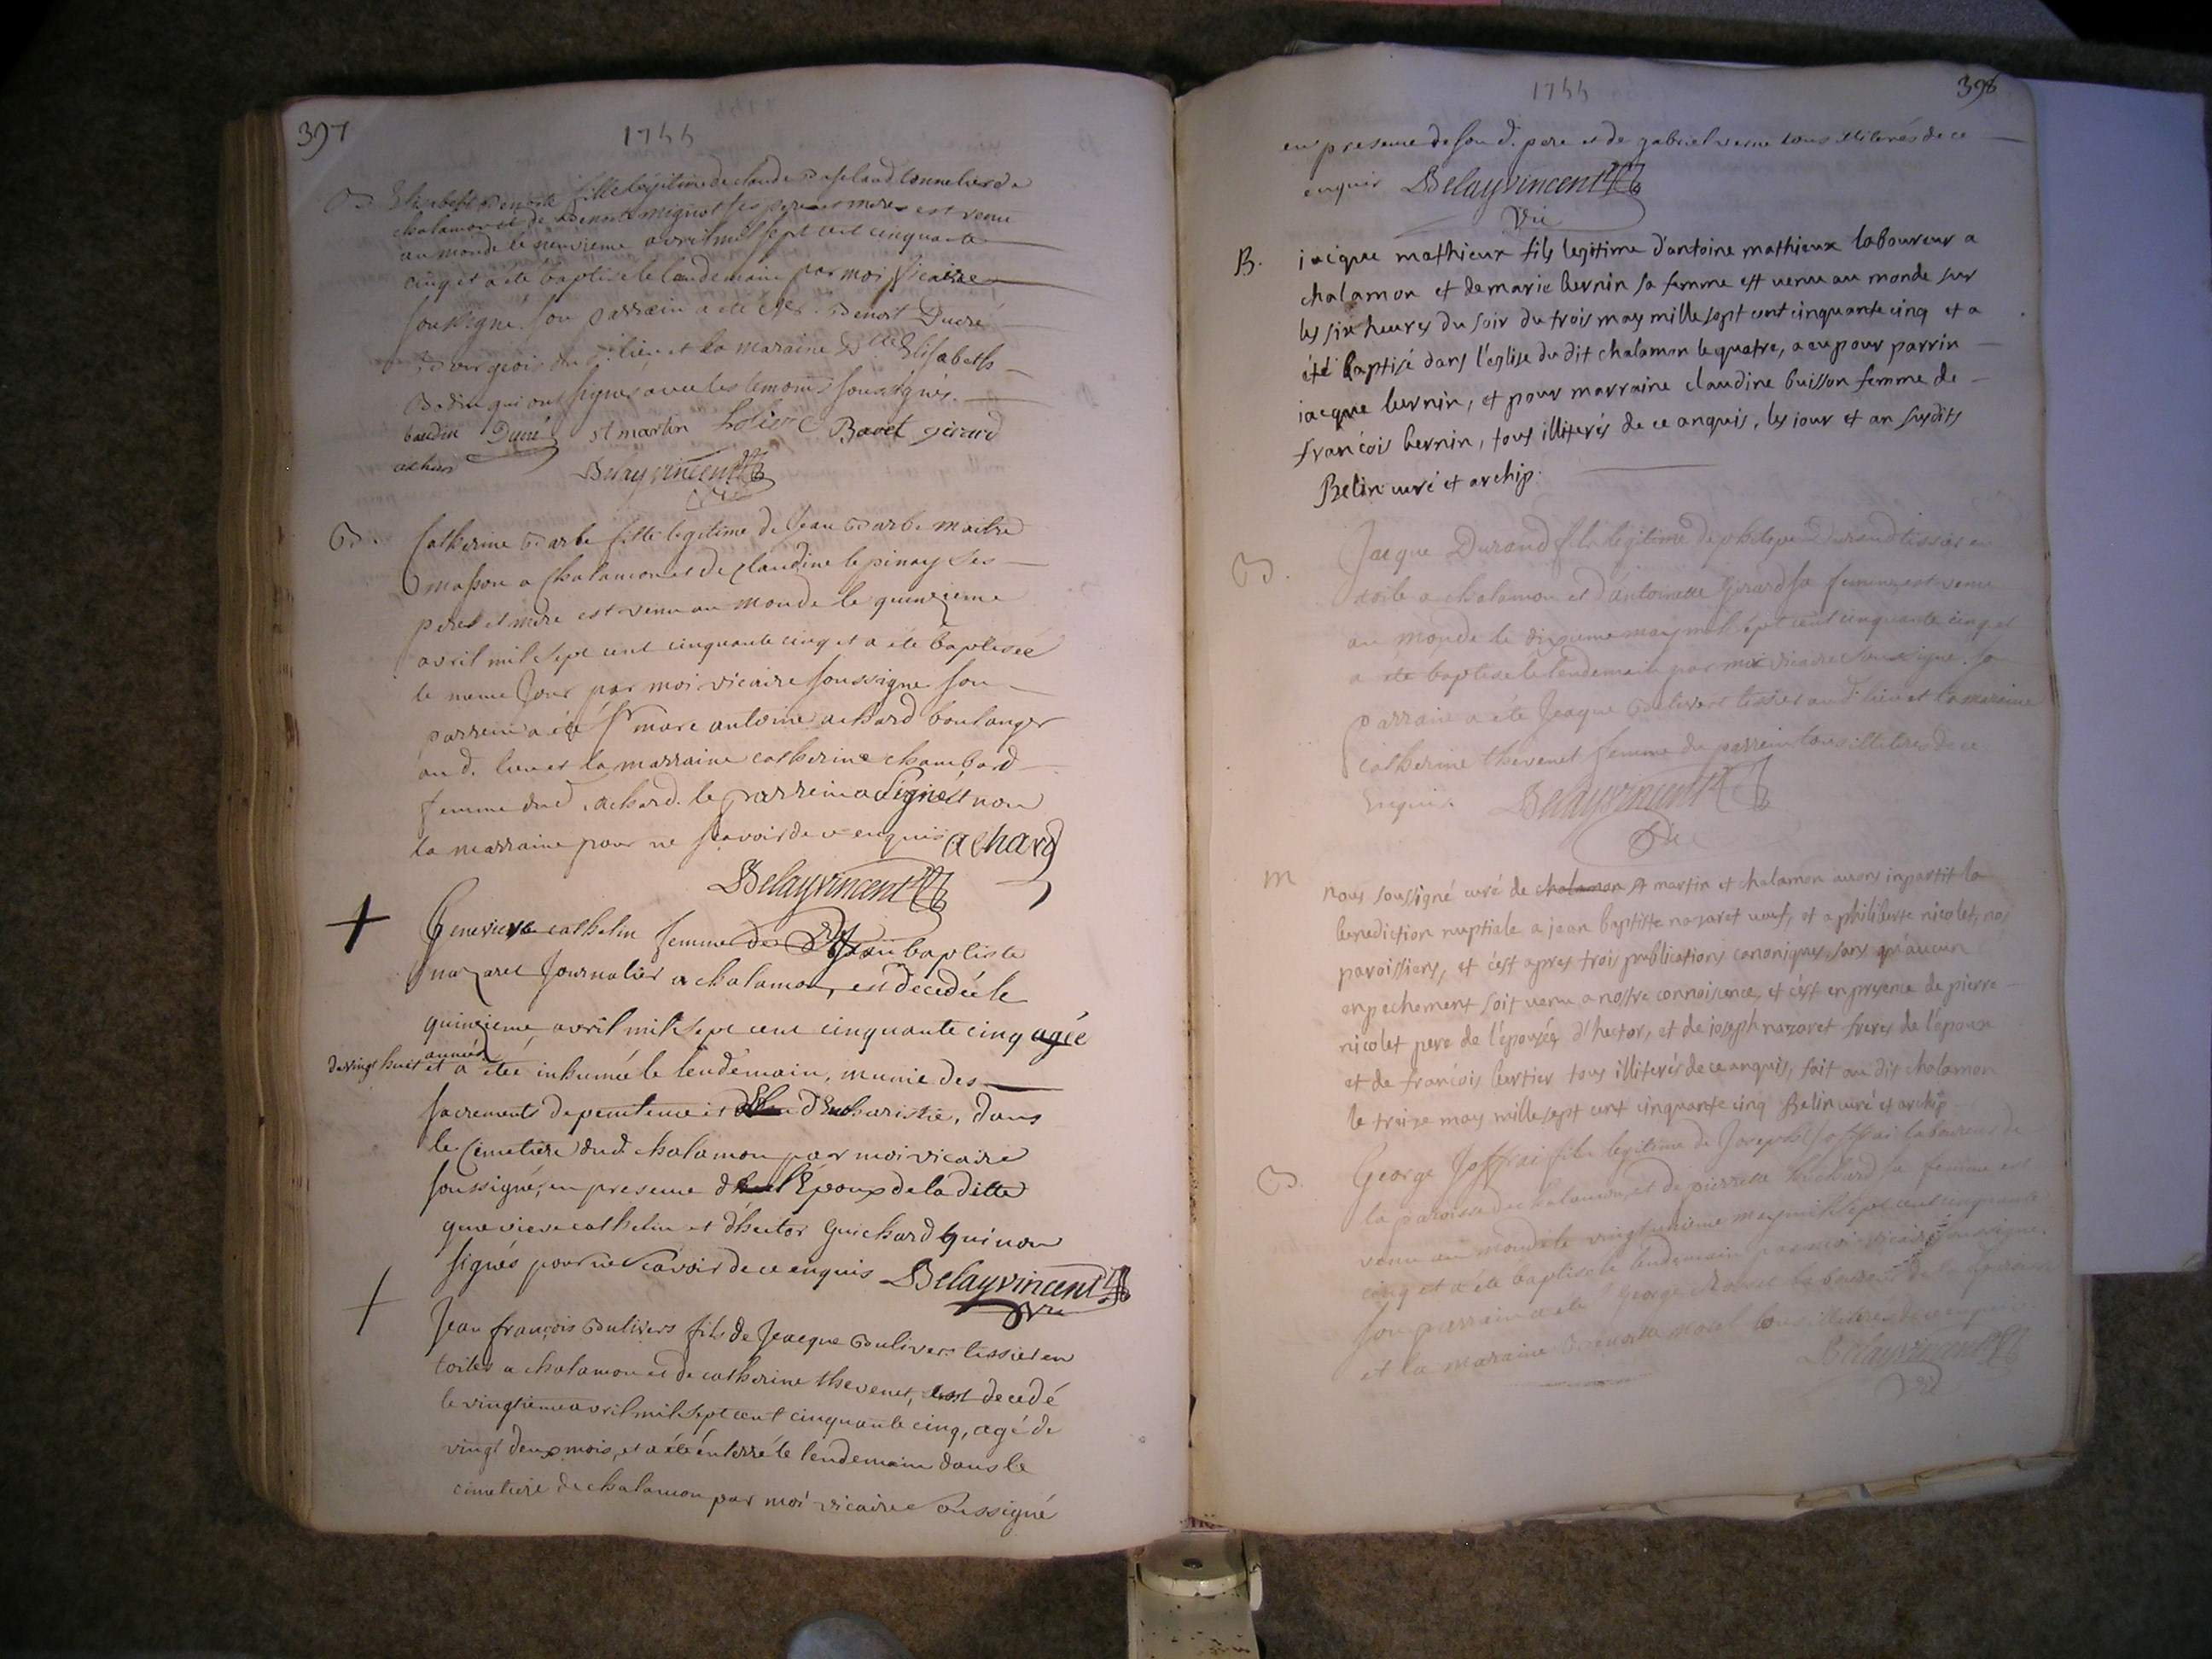 397
1755
B. Elisabeth Benoite fille légitime de claude Baseland tonnelier de
chalamon et de Benoite mignot ses pere et mere est venu
au monde le neuvieme avril mil sept cent cinquante
cinq et a été baptisé le lendemain par moi vicaire
soussigné. son parrain a été Benoit Ducré
Bourgeois du d. lieu et la maraine dlle Elisabeth
Bodin qui ont signés avec les temoins soussignés.
baudin Ducré st martin Bavet gerard
achard
Delayvincent
B. Catherine Barbe fille legitime de Jean Barbe maitre
masson a chalamon et de claudine lepinay ses
peres et mere est venu au monde le quinzieme
avril mil sept cent cinquante cinq et a été baptisée
le meme jour par moi vicaire soussigné son
parrein a été sr marc antoine achard boulanger
aud. lieu et la marraine catherine chambard
femme dud. achard. le parrein a signé et non
la marraine pour ne scavoir de ce enquis achard
Delayvincent
Genevieve cathelin femme de Jean baptiste
nazaret Journalier a chalamon, est decedée le
quinzieme avril mil sept cent cinquante cinq agée
de vingt huit années
et a été inhumée le lendemain, munie des
sacrements de penitence et d'Eucharistie, dans
le cimetiere dud. chalamon par moi vicaire
soussigné, en presence de l'Epoux de la ditte
genevieve cathelin et d'hector Guichard qui non
signés pour ne scavoir de ce enquis Delayvincent
vic
Jean françois Boulivers fils de Jacque Boulivers tissier en
toiles a chalamon et de catherine thevenet, est decedé
le vingtieme avril mil sept cent cinquante cinq, agé de
vingt deux mois, et a été enterré le lendemain dans le
cimetiere de chalamon par moi vicaire soussigné
1755
398
en presence de son d. pere et de gabriel verne tous illiterés de ce
enquis Delayvincent
vic
B. jacque mathieux fils legitime d'antoine mathieux laboureur a
chalamon et de marie bernin sa femme est venu au monde sur
les six heures du soir du trois may mille sept cent cinquante cinq et a
été baptisé dans l'eglise du dit chalamon le quatre, a eu pour parrin
jacque bernin, et pour marraine claudine buisson femme de
françois bernin, tous illiterés de ce anquis, les jour et an susdits
Belin curé et archip.
B. Jacque Durand fils légitime de philipe Durand tissier en
toile a chalamon et d'antoinette Gerard sa femme, est venu
au monde le dixieme may mil sept cent cinquante cinq et
a été baptisé le lendemain par moi vicaire soussigné. son
parrain a été Jacque Boulivers tissier aud. lieu et la maraine
catherine thevenet femme du parrein tous illiterés de ce
Enquis Delayvincent
vic
m nous soussigné curé de chalamon st martin et chalamon avons inpartit la
benediction nuptiale a jean baptiste nazaret veuf, et a philiberte nicolet, nos
paroissiens, et c'est apres trois publications canoniques, sans qu'aucun
enpechement soit venu a nostre connoisence, et c'est en presence de pierre
nicolet pere de l'épousée, d'hector, et de joseph nazaret freres de l'époux
et de françois bertier tous illiterés de ce anquis, fait au dit chalamon
le treize may mille sept cent cinquante cinq Belin curé et archip
B. George Joffrai fils legitime de Joseph Joffrai laboureur de
la paroisse de chalamon, et de pierrette sa femme est
venu au monde le vingtunieme may mil sept cent cinquante
cinq et a été baptisé le lendemain par moi vicaire soussigné.
son parrein a été George
et la maraine Benoitte morel tous illiterés de ce enquis
Delayvincent
vic